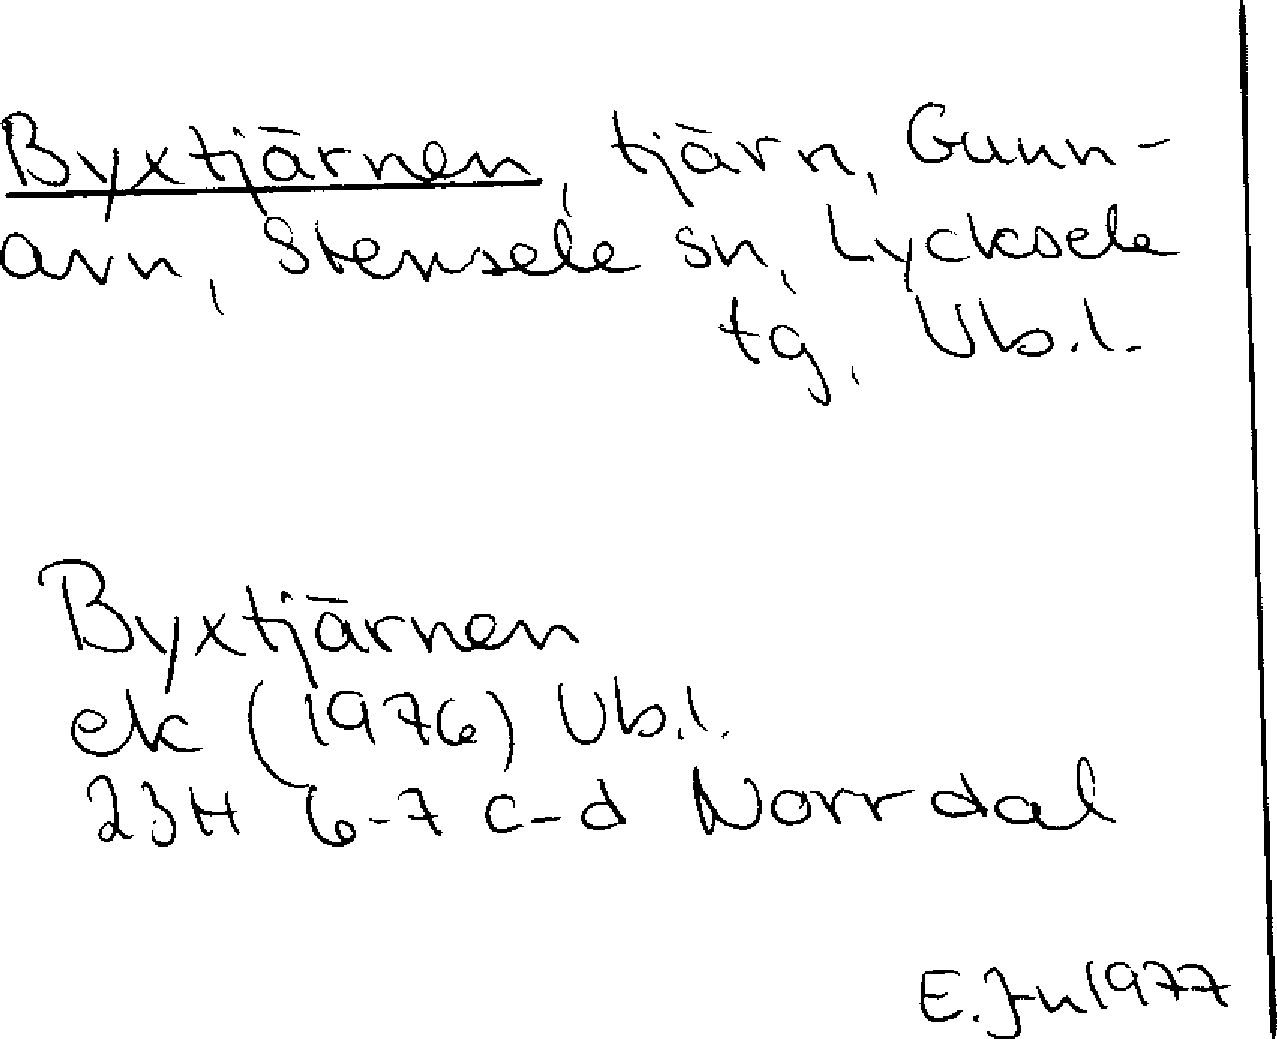 Byxtjärnen, tjärn, Gunn-
arn, Stensele sn, Lycksele
tg, Vb.l.
Byxtjärnen
ek (1976) Vb.l.
23H 6-7 c-d Norrdal
E.Jn 1977